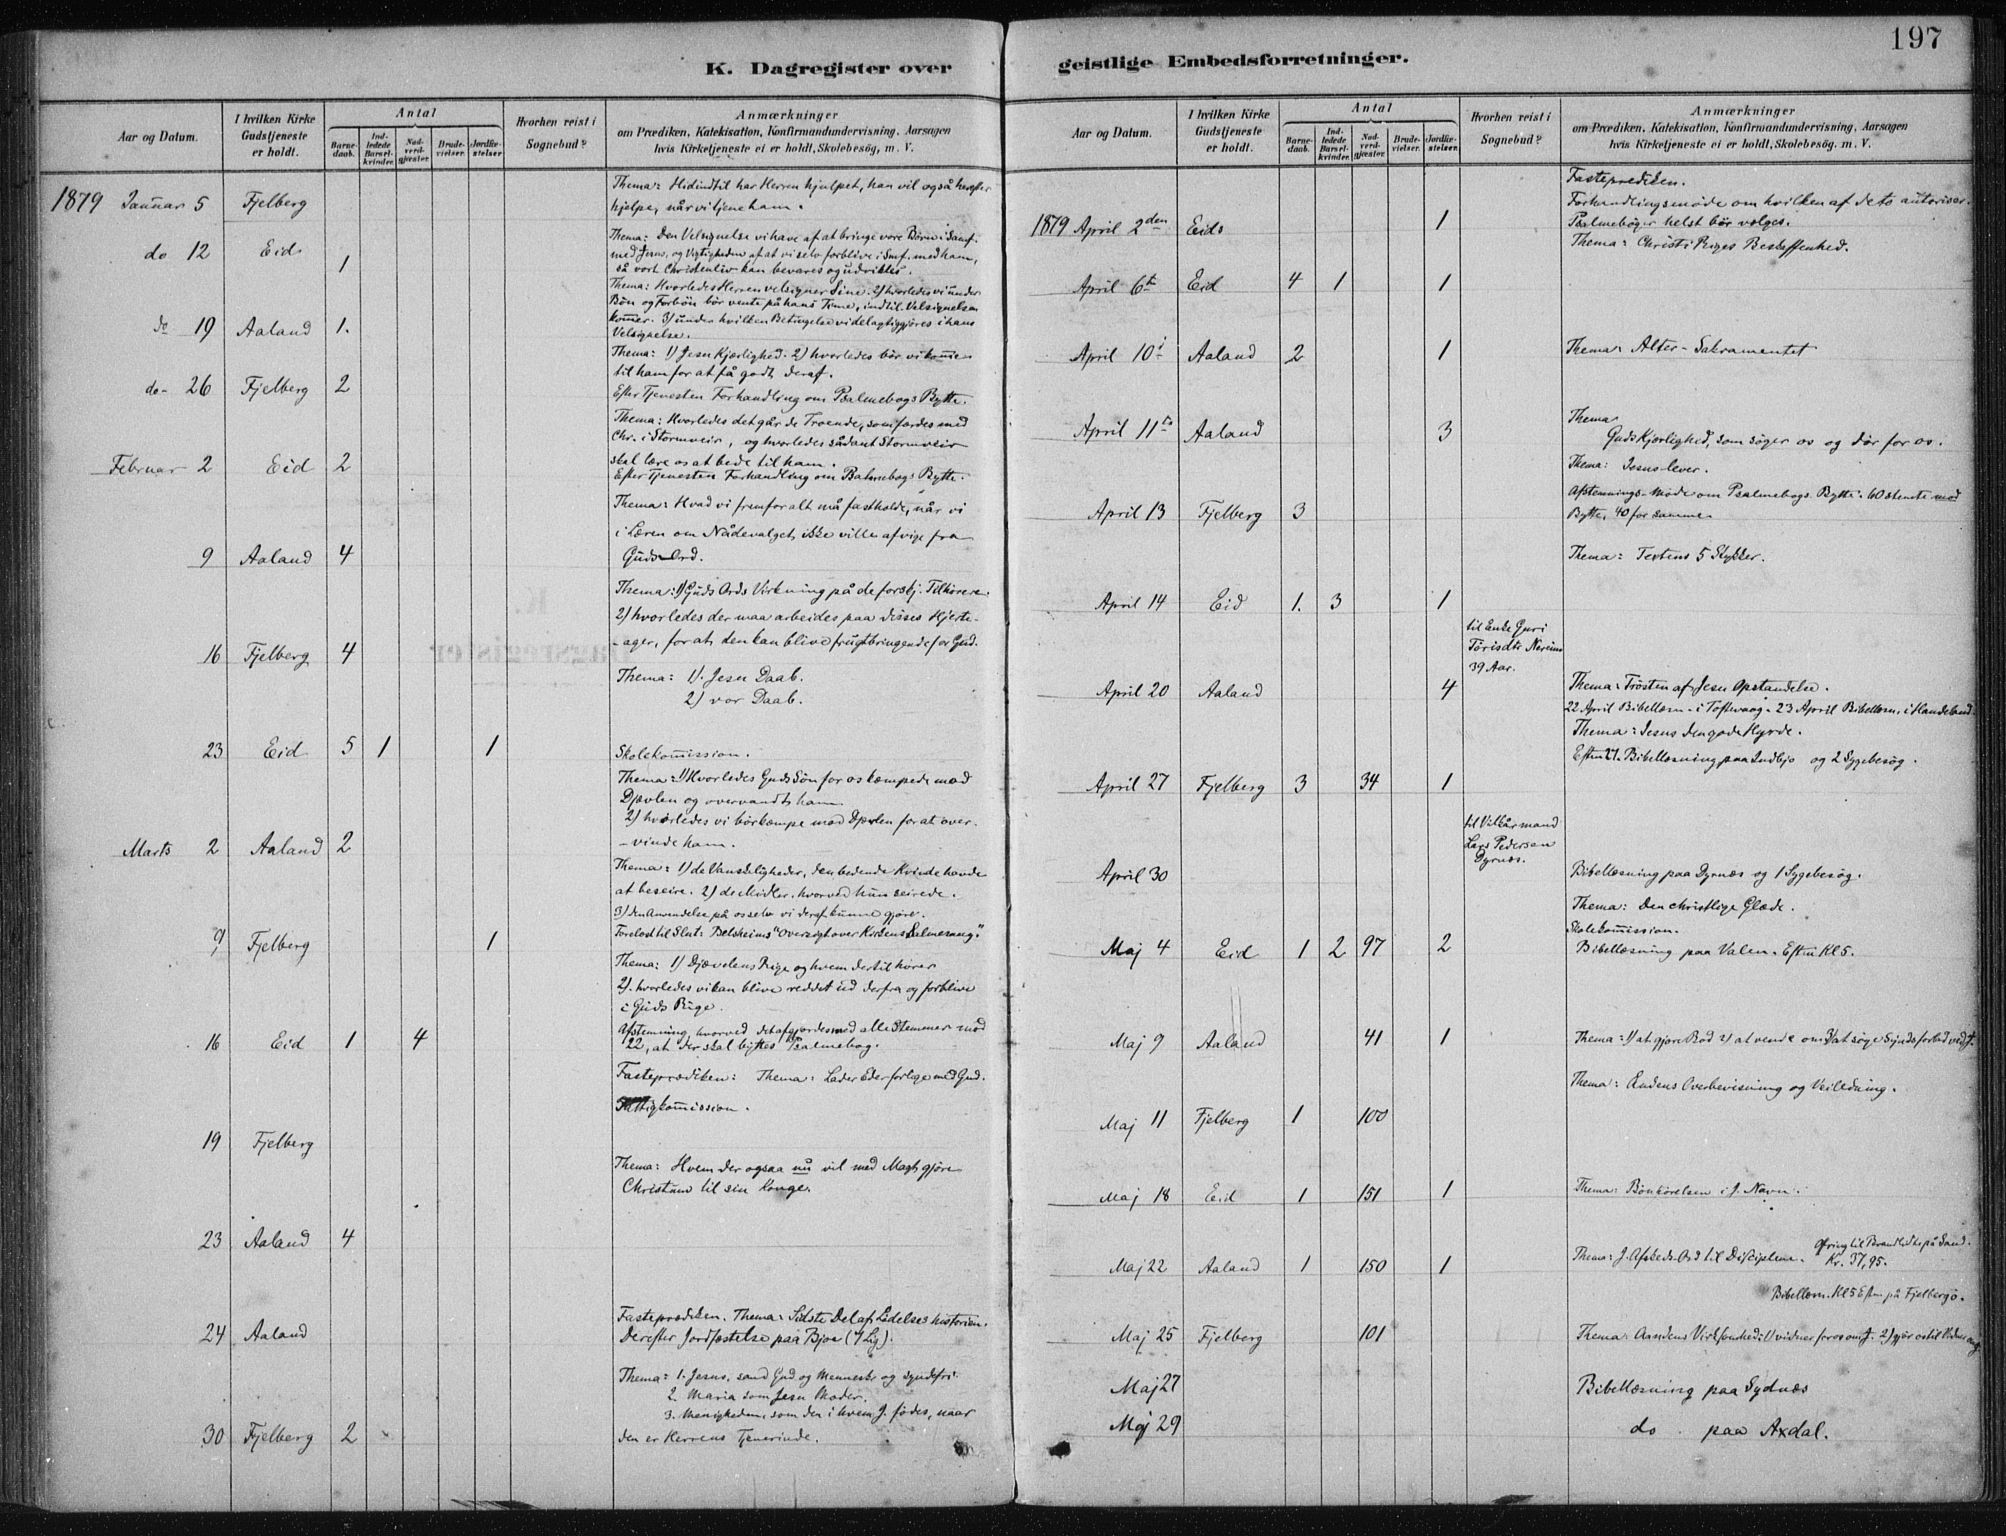 197
K. Dagregister over
geistlige Embedsforretninger.
Aar og Datum.
I hvilken Kirke Gudstjeneste er holdt.
Antal
Barne-daab.
Ind-ledede Barsel-kvinder.
Nad-verd-gjæster.
Brude-vielser.
Jordfæ-stelser
Hvorhen reist i Sognebud?
Anmærkninger
om Prædiken, Katekisation, Konfirmandundervisning, Aarsagen
hvis Kirketjeneste ei er holdt, Skolebesøg, m. V.
Thema: Hidindtil har Herren hjulpet, han vil også herefter
1879 Januar 5 Fjelberg hjelpe, når vi tjene ham.
Thema: Den Velsignelse vi have af at bringe vore Børn i Samf.
do 12 Eid 1 med Jesus, og Vigtigheden af at vi selv forblive i Smf. med ham,
så vort Christenliv kan bevares og udvikles.
Thema: Hvorledes Herren velsigner Sine. 2) hvorledes vi under
Bøn og Forbøn bør vente på hans Time, indtil Velsignelsen
do 19 Aaland 1. kommer. 3) under hvilken Betingelse vi delagtiggjøres i hans
Velsignelse.
Thema: 1) Jesu Kjærlighed. 2) hvorledes bør vi komme
til ham for at få godt deraf.
do 26 Fjelberg 2 Efter Tjenesten Forhandling om Psalmebogs Bytte.
Thema: Hvorledes det går de Troende, som fardes med
Chr. i Stormveir, og hvorledes sådant Stormveir
Februar 2 Eid 2 skal lære os at bede til ham.
Efter Tjenesten Forhandling om Psalmebogs Bytte.
Thema: Hvad vi fremfor alt må fastholde, når vi
i Læren om Nådevalget ikke ville afvige fra
9 Aaland 4 Guds Ord.
Thema: 1) Guds Ords Virkning på de forskj. Tilhørere.
2) hvorledes der maa arbeides paa disses Hjerte-
16 Fjelberg 4 -ager, for at den kan blive frugtbringende for Gud.
Thema: 1). Jesu Daab.
2) vor Daab.
23 Eid 5 1 1 Skolekommission.
Thema: 1) Hvorledes Guds Søn for os kæmpede mod
Djævlen og overvandt ham
2) hvorledes vi bør kæmpe mod Djævlen for at over-
Marts 2 Aaland 2 -vinde ham.
Thema: 1) de Vanskeligheder, den bedende Kvinde havde
at beseire. 2) de Midler, hvorved hun seirede.
3) den Anvendelse på os selv vi deraf kunne gjøre.
9 Fjelberg 1 Forelæst til Slut: Belsheims "Oversigt over Kirkens Salmesang"
Thema: 1) Djævelens Rige og hvem dertil hører
2). hvorledes vi kan blive reddet ud derfra og forblive
i Guds Rige.
16 Eid 1 4 Afstemning, hvorved det afgjordes med alle Stemmer mod
22, at der skal byttes Psalmebog.
Fasteprædiken: Thema: Lader Eder forlige med Gud.
Fattigkommission.
19 Fjelberg
Thema: Hvem der ogsaa nu vil med Magt gjøre
Christum til sin Konge.
23 Aaland 4
Fasteprædiken. Thema: Sidste Del af Lidelseshistorien.
24 Aaland Derefter Jordfæstelse paa Bjoa (1 Lig).
Thema: 1. Jesus, sand Gud og Menneske og syndefri.
2. Maria som Jesu Moder.
3. Menigheden, som den i hvem J. fødes, naar
30 Fjelberg 2 den er Herrens Tjenerinde.
Aar og Datum.
I hvilken Kirke Gudstjeneste er holdt.
Antal
Barne-daab.
Ind-ledede Barsel-kvinder.
Nad-verd-gjæster.
Brude-vielser.
Jordfæ-stelser.
Hvorhen reist i Sognebud?
Anmærkninger
om Prædiken, Katekisation, Konfirmandundervisning, Aarsagen
hvis Kirketjeneste ei er holdt, Skolebesøg, m. V.
Fasteprediken.
Forhandlingsmøde om hvilken af de to autoriser.
1879 April 2den Eids 1 Psalmebøger helst bør vælges.
Thema: Christi Riges Beskaffenhed.
April 6te Eid 4 1 1
April 10 Aaland 2 1 Thema: Alter-Sakramentet
Thema
April 11 Aaland 3 Guds Kjærlighed, som søger os og dør for os.
Thema: Jesus lever.
Afstemnings-Møde om Psalmebogs Bytte: 60 stemte mod
April 13 Fjelberg 3 Bytte, 40 for samme
Thema: Textens 5 Stykker.
April 14 Eid 1. 3 1
til Enke Guri
39 Aar.
April 20 Aaland 4 Thema: Trøsten af Jesu Opstandelse.
22 April Bibellæsn. i Toftevaag. 23 April Bibellæsn. i Handeland.
Thema: Jesus den gode Hyrde.
Eftm 27. Bibellæsning paa Indbjo og 2 Sygebesøg.
April 27 Fjelberg 3 34 1
til Vilkårmand
Lars Pedersen
Dyrnæs.
April 30 Bibellæsning paa Dyrnæs og 1 Sygebesøg.
Thema: Den christlige Glæde.
Skolekommission.
Maj 4 Eid 1 2 97 2 Bibellæsning paa Valen. Eftm Kl 5.
Maj 9 Aaland 41 1 Thema: 1) at gjøre Bod 2) at vende om 3) at søge Synds forlad ved J.
Thema: Aandens Overbevisning og Veiledning.
Maj 11 Fjelberg 1 100
Maj 18 Eid 1 151 1 Thema: Bønhørelsen i J. Navn.
Maj 22 Aaland 1 150 1 Thema: J. Afskeds Ord til Disciplene. Ofring til Brandlidte på Sand.
Kr. 37,95.
Bibellæsn. Kl 5 Eftm på Fjelbergö.
Maj 25 Fjelberg 101 Thema: Aandens Virksomhed: 1) vidner for os om J. 2) gjør os til Vidner om J.
Maj 27 Bibellæsning paa Sydnæs
Maj 29 do paa Axdal.